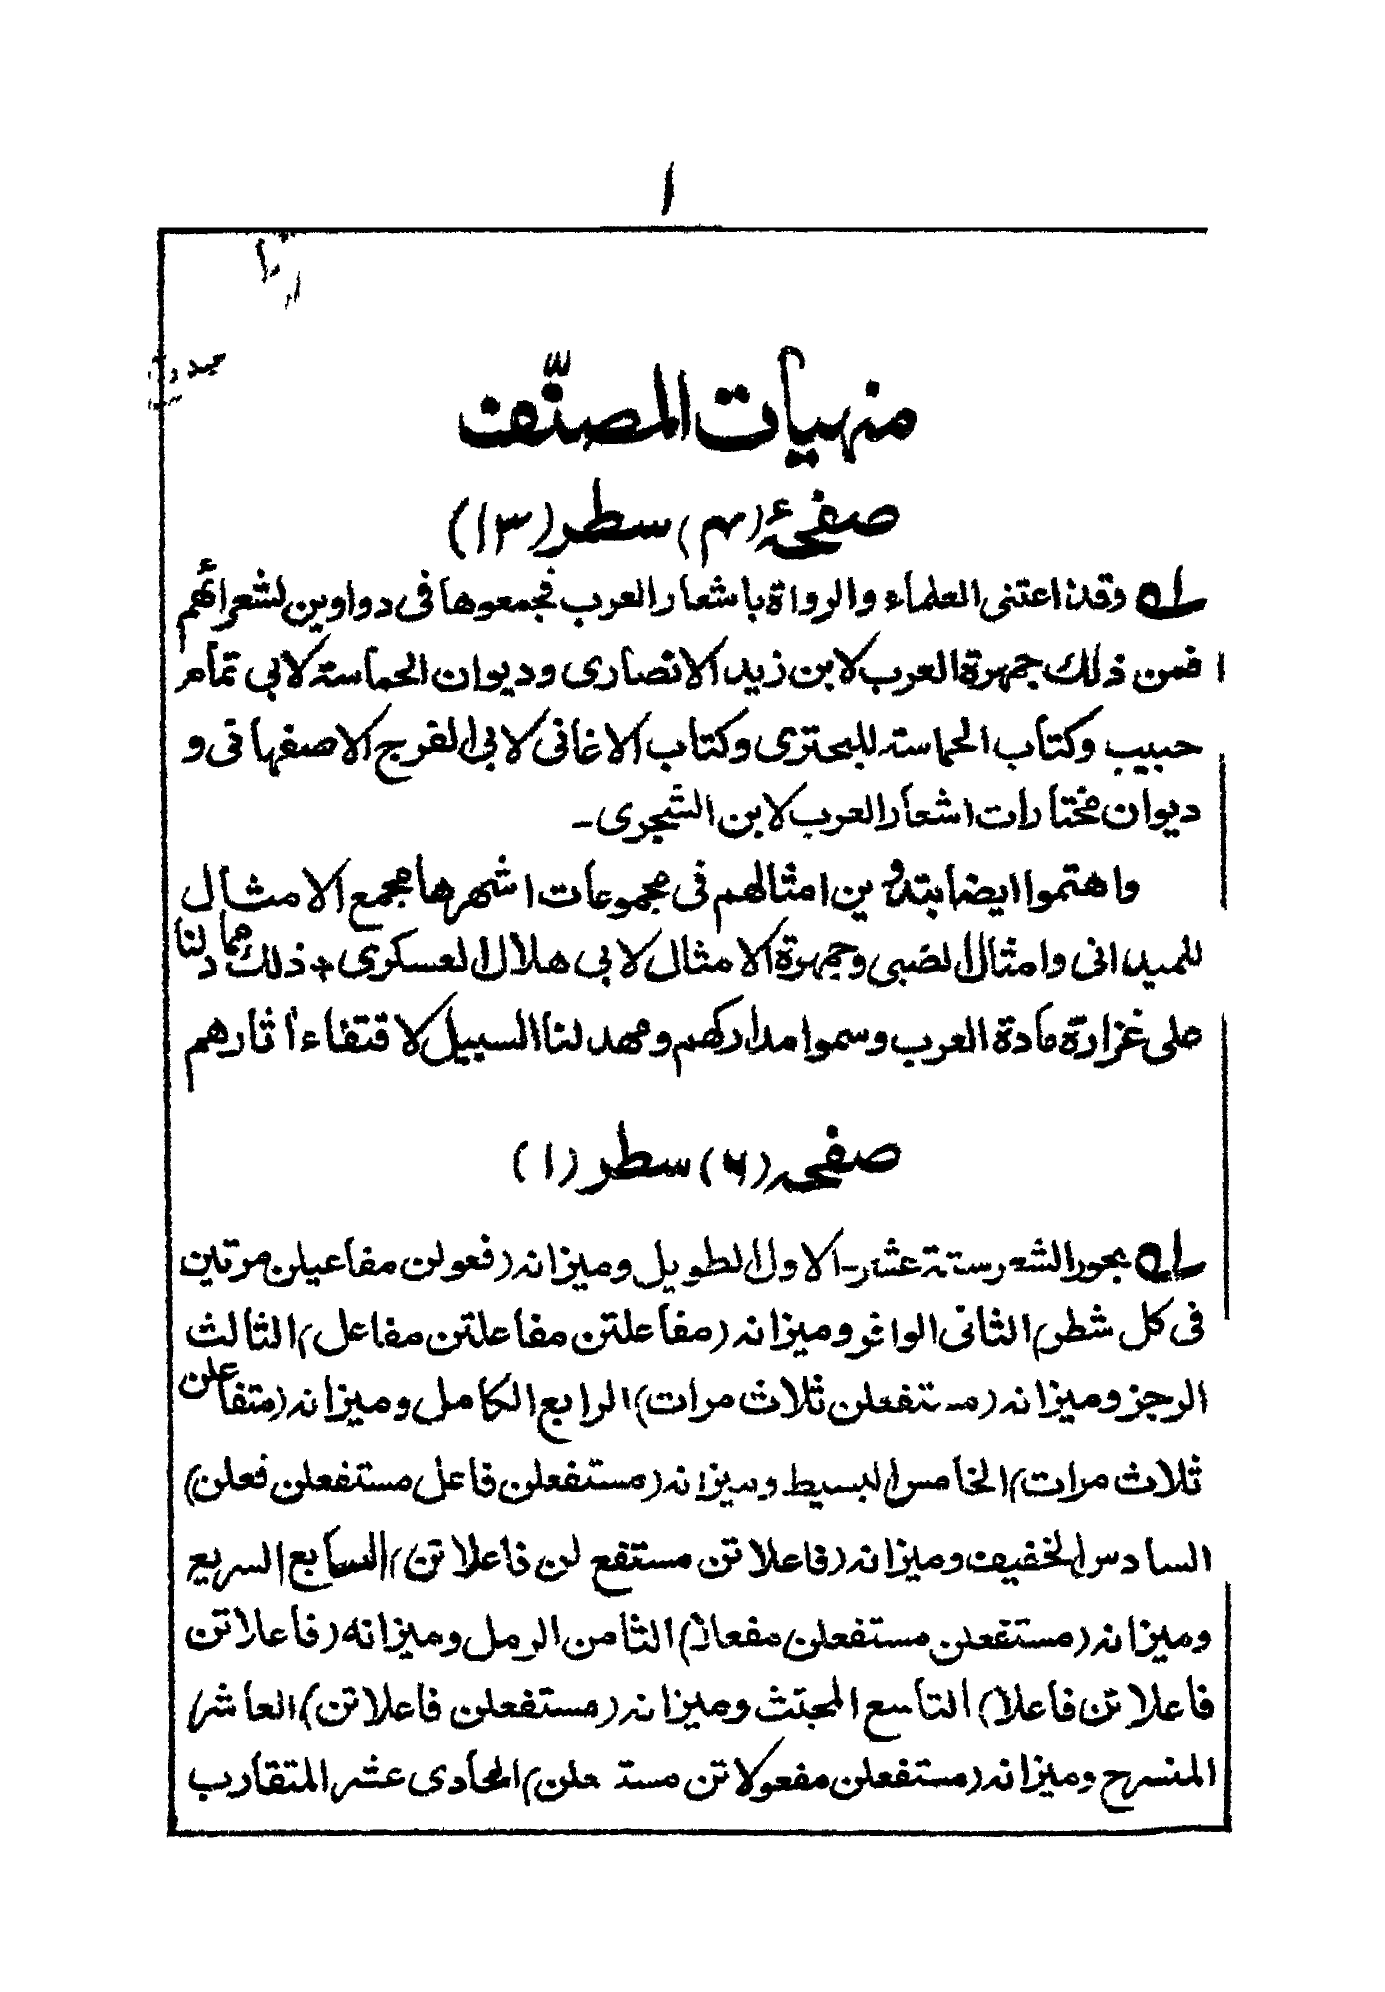 ١
منهيات المصنّف
صفحۂ (٣) سطر (١٣)
له وقد اعتنى العلماء والرواة باشعار العرب فجمعوها فى دواوين لشعرائهم
فمن ذلك جمهرة العرب لابن زيد الانصارى وديوان الحماسة لابي تمام
حبيب وكتاب الحماسة للبحترى وكتاب الاغانى لابي الفرج الاصفهانى و
ديوان مختارات اشعار العرب لابن الشجرى ـ
واهتموا ايضا بتدوين امثالهم فى مجموعات اشهرها مجمع الامثال
للميدانى وامثال الضبى وجمهرة الامثال لابي هلال العسكرى + ذلك مما دلنا
على غزارة مادة العرب وسموا مداركهم ومهد لنا السبيل لاقتفاء أثارهم
صفحه (٧) سطر (١)
له بحور الشعر ستة عشر ـ الاول الطويل وميزانه (فعولن مفاعيلن مرتين
فى كل شطر) الثانى الوافر وميزانه (مفاعلتن مفاعلتن مفاعل) الثالث
الرجز وميزانه (مستفعلن ثلاث مرات) الرابع الكامل وميزانه (متفاعلن
ثلاث مرات) الخامس البسيط وميزانه (مستفعلن فاعل مستفعلن فعلن)
السادس الخفيف وميزانه (فاعلاتن مستفع لن فاعلاتن) السابع السريع
وميزانه (مستفعلن مستفعلن مفعلا) الثامن الرمل وميزانه (فاعلاتن
فاعلاتن فاعلا) التاسع المجتث وميزانه (مستفعلن فاعلاتن) العاشر
المنسرح وميزانه (مستفعلن مفعولاتن مستعلن) الحادى عشر المتقارب